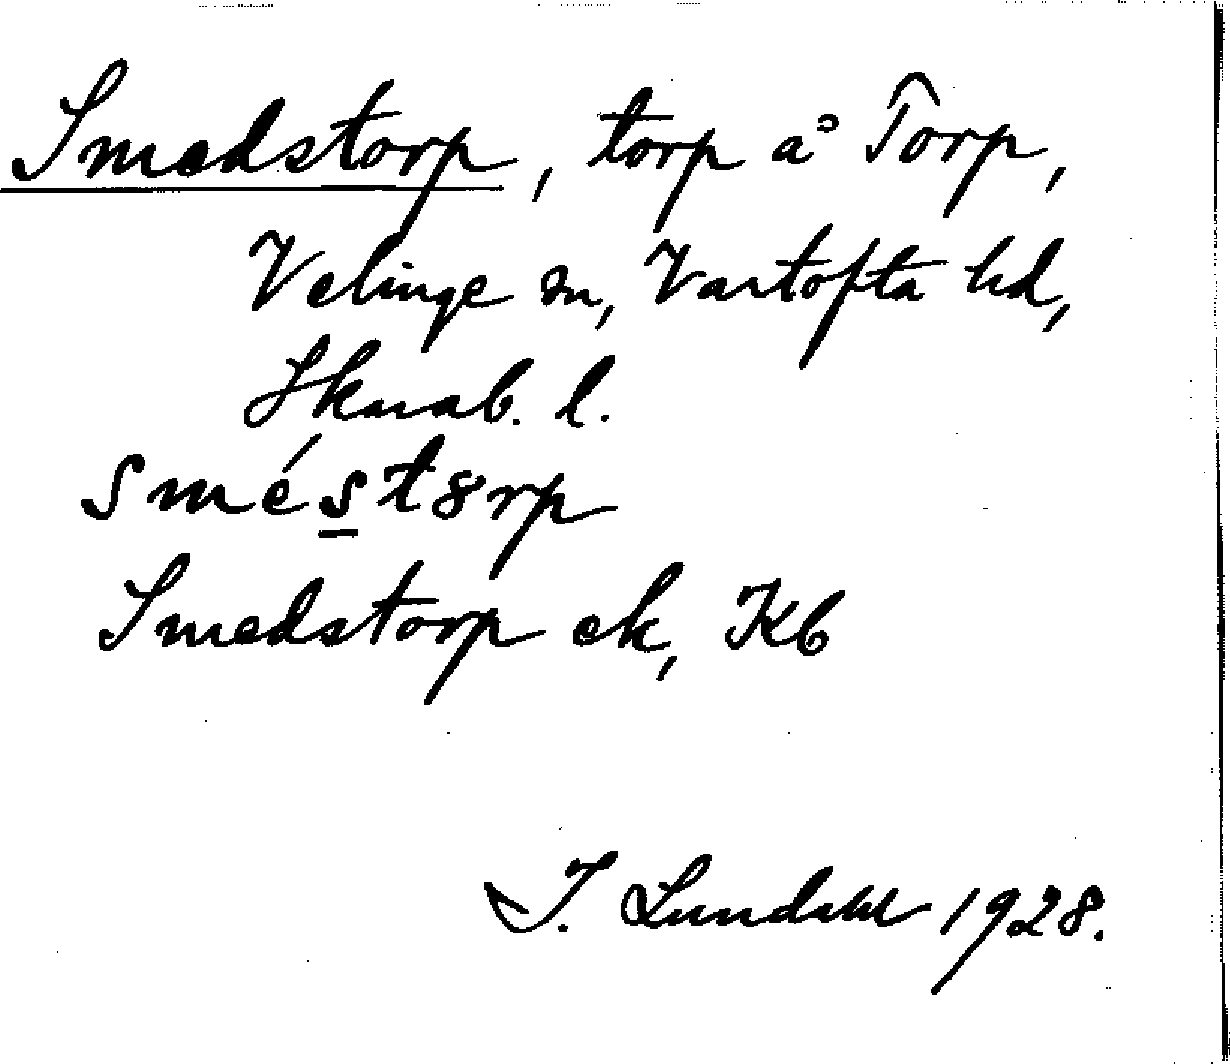 Smedstorp, torp å Torp,
Velinge sn, Vartofta hd,
Skarab. l.
smést8rp
Smedstorp ek, Kb
I. Lundahl 1928.